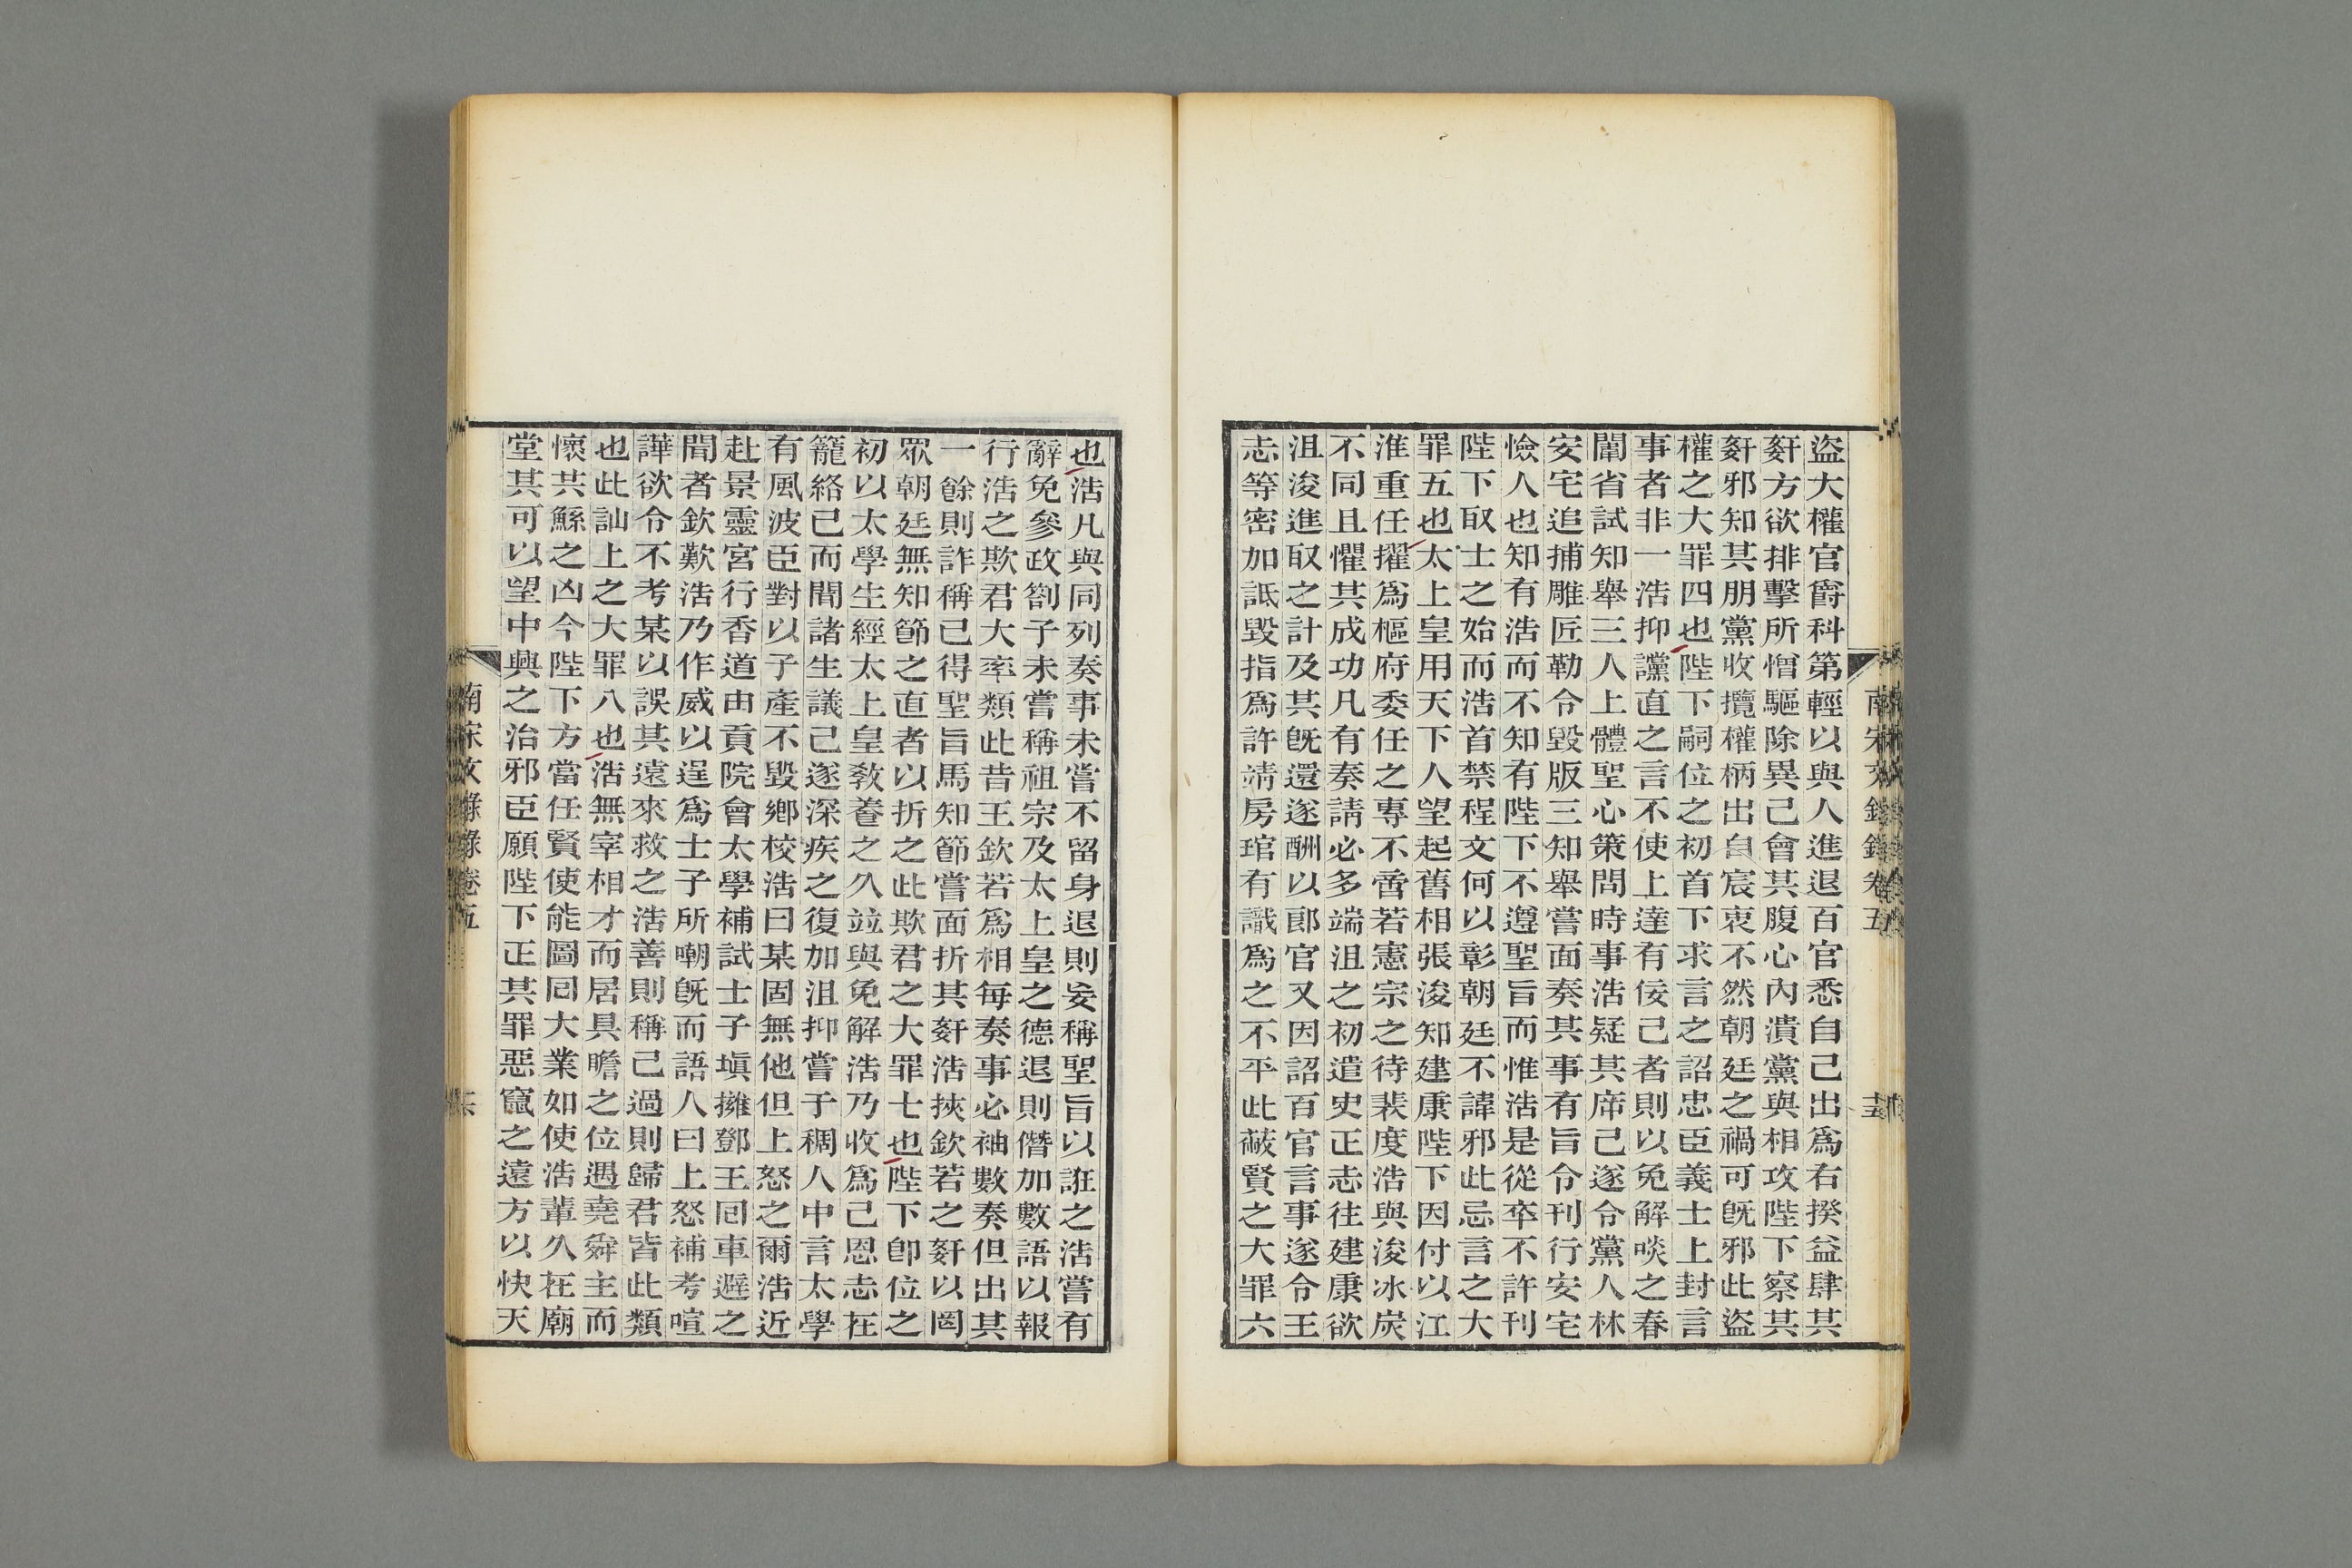 盜大權官爵科第輕以與人進退百官悉自己出爲右揆益肆其
姧方欲排擊所憎驅除異己會其腹心內潰黨與相攻陛下察其
姧邪知其朋黨收攬權柄出自宸衷不然朝廷之禍可旣邪此盜
權之大罪四也陛下嗣位之初首下求言之詔忠臣義士上封言
事者非一浩抑讜直之言不使上達有佞己者則以免解啖之春
闈省試知舉三人上體聖心策問時事浩疑其席己遂令黨人林
安宅追捕雕匠勒令毀版三知舉嘗面奏其事有旨令刊行安宅
憸人也知有浩而不知有陛下不遵聖旨而惟浩是從卒不許刊
陛下取士之始而浩首禁程文何以彰朝廷不諱邪此忌言之大
罪五也太上皇用天下人望起舊相張浚知建康陛下因付以江
淮重任擢爲樞府委任之專不啻若憲宗之待裴度浩與浚冰炭
不同且懼其成功凡有奏請必多端沮之初遣史正志往建康欲
沮浚進取之計及其旣還遂酬以郎官又因詔百官言事遂令王
志等密加詆毀指爲許靖房琯有識爲之不平此蔽賢之大罪六
南宋文錄錄卷五
十五
也浩凡與同列奏事未嘗不留身退則妄稱聖旨以誑之浩嘗有
辭免參政劄子未嘗稱祖宗及太上皇之德退則僭加數語以報
行浩之欺君大率類此昔王欽若爲相每奏事必袖數奏但出其
一餘則詐稱已得聖旨馬知節嘗面折其姧浩挾欽若之姧以罔
眾朝廷無知節之直者以折之此欺君之大罪七也陛下卽位之
初以太學生經太上皇敎養之久竝與免解浩乃收爲己恩志在
籠絡己而聞諸生議己遂深疾之復加沮抑嘗于稠人中言太學
有風波臣對以子產不毀鄉校浩曰某固無他但上怒之爾浩近
赴景靈宮行香道由貢院會太學補試士子塡擁鄧王囘車避之
聞者欽歎浩乃作威以逞爲士子所嘲旣而語人曰上怒補考喧
譁欲令不考某以誤其遠來救之浩善則稱己過則歸君皆此類
也此訕上之大罪八也浩無宰相才而居具瞻之位遇堯舜主而
懷共鯀之凶今陛下方當任賢使能圖囘大業如使浩輩久在廟
堂其可以望中興之治邪臣願陛下正其罪惡竄之遠方以快天
南宋文錄錄卷五
十六